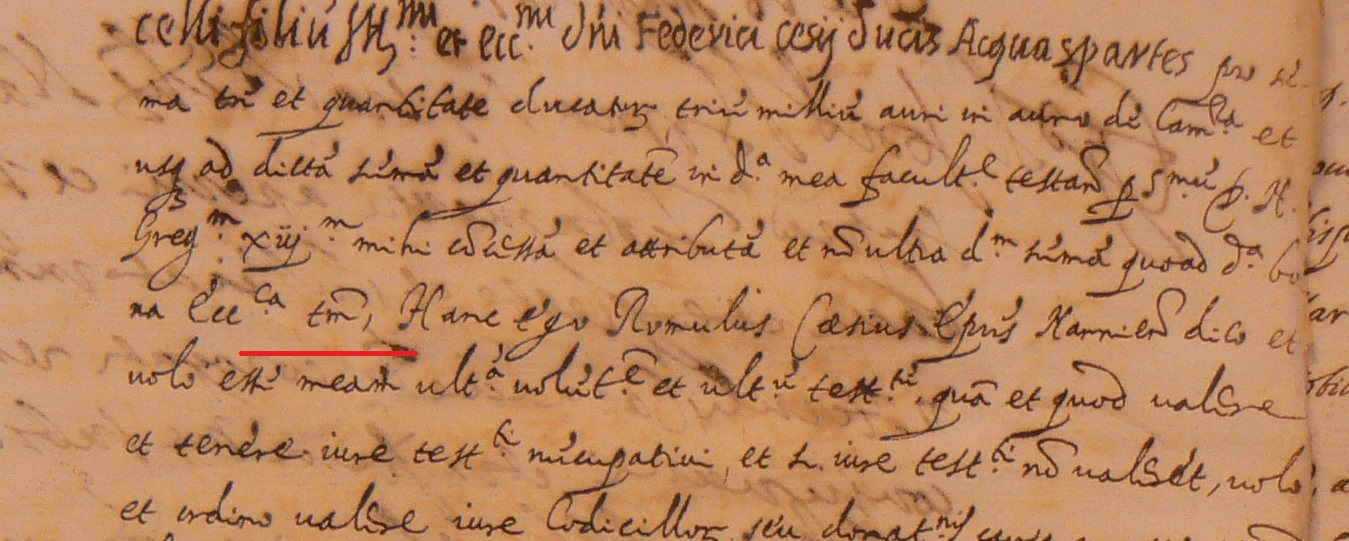 celli filiū Ill:mi et ecc:mi dni Federici cesij ducis Acquaspartes pro sū-
ma tñ et quantitate ducatorꝝ triū milliū auri in auro de Cam:ra et
usqꝫ ad dictā sūmā et quantitatē in d.a mea facult.e testan̄ ꝑ S.mū D. N.
Greg:m xiij:m mihi cōcessā et attributā et nō ultra d.m sūmā quoad d.a bo
na Ecc:ca tm̄, Hanc ego Romulus Cæsius Ep̄us Narnien̄ dico et
volo esse meam ult.ā volūt.ē et ult.ū test.tū, quā et quod valere
et tenere iure test.ti nūcupativi, et si iure test.ti nō valeret, volo,
et ordino valere iure Codicillorꝝ seu donat:nis